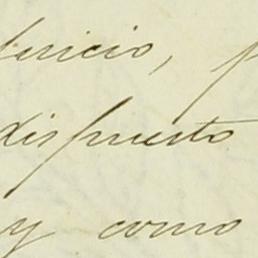 juicio, p
dispuesto
y como